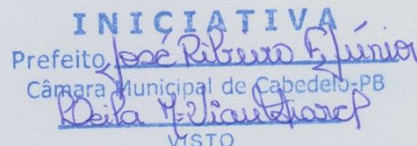 INICIATIVA
Prefeito José Ribeiro F. Júnior
Câmara Municipal de Cabedelo-PB
VISTO